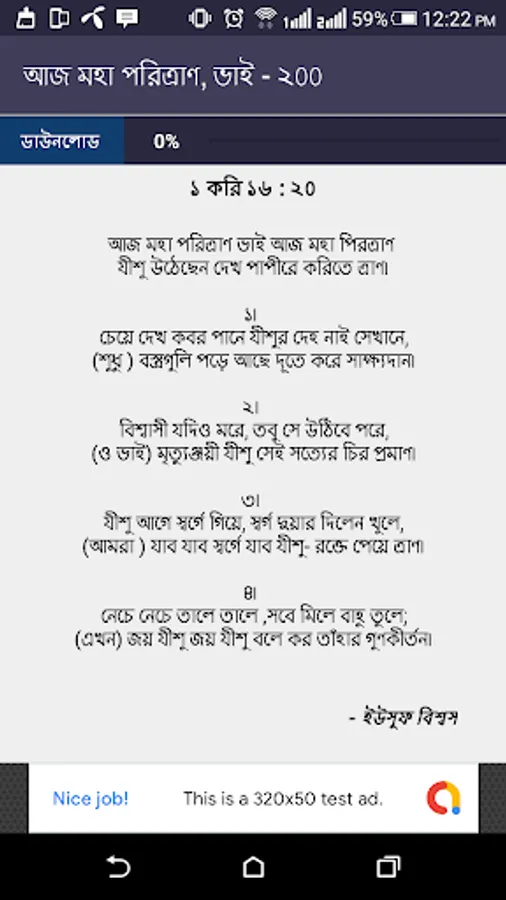 59% 12:22 PM
আজ মহা পরিত্রাণ, ভাই - ২00
ডাউনলোড 0%
১ করি ১৬ : ২0
আজ মহা পরিত্রাণ ভাই আজ মহা পিরত্রাণ
যীশু উঠেছেন দেখ পাপীরে করিতে ত্রাণ।
১।
চেয়ে দেখ কবর পানে যীশুর দেহ নাই সেখানে,
(শুধু ) বস্ত্রগুলি পড়ে আছে দূতে করে সাক্ষ্যদান।
২।
বিশ্বাসী যদিও মরে, তবু সে উঠিবে পরে,
(ও ভাই) মৃত্যুঞ্জয়ী যীশু সেই সত্যের চির প্রমাণ।
৩।
যীশু আগে স্বর্গে গিয়ে, স্বর্গ দুয়ার দিলেন খুলে,
(আমরা ) যাব যাব স্বর্গে যাব যীশু- রক্তে পেয়ে ত্রাণ।
৪।
নেচে নেচে তালে তালে ,সবে মিলে বাহু তুলে;
(এখন) জয় যীশু জয় যীশু বলে কর তাঁহার গুণকীর্তন।
- ইউসুফ বিশ্বস
Nice job! This is a 320x50 test ad.